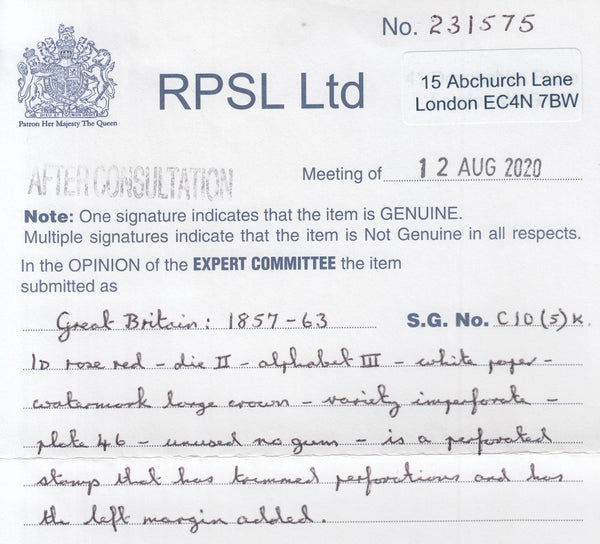 No. 231575
RPSL Ltd
15 Abchurch Lane
London EC4N 7BW
Patron Her Majesty The Queen
AFTER CONSULTATION
Meeting of 12 AUG 2020
Note: One signature indicates that the item is GENUINE.
Multiple signatures indicate that the item is Not Genuine in all respects.
In the OPINION of the EXPERT COMMITTEE the item
submitted as
Great Britain: 1857-63 S.G. No. C10(5)k.
1D rose red - die II - alphabet III - white paper -
watermark large crown - variety imperforate -
plate 46 - unused no gum - is a perforated
stamp that has trimmed perforations and has
the left margin added.